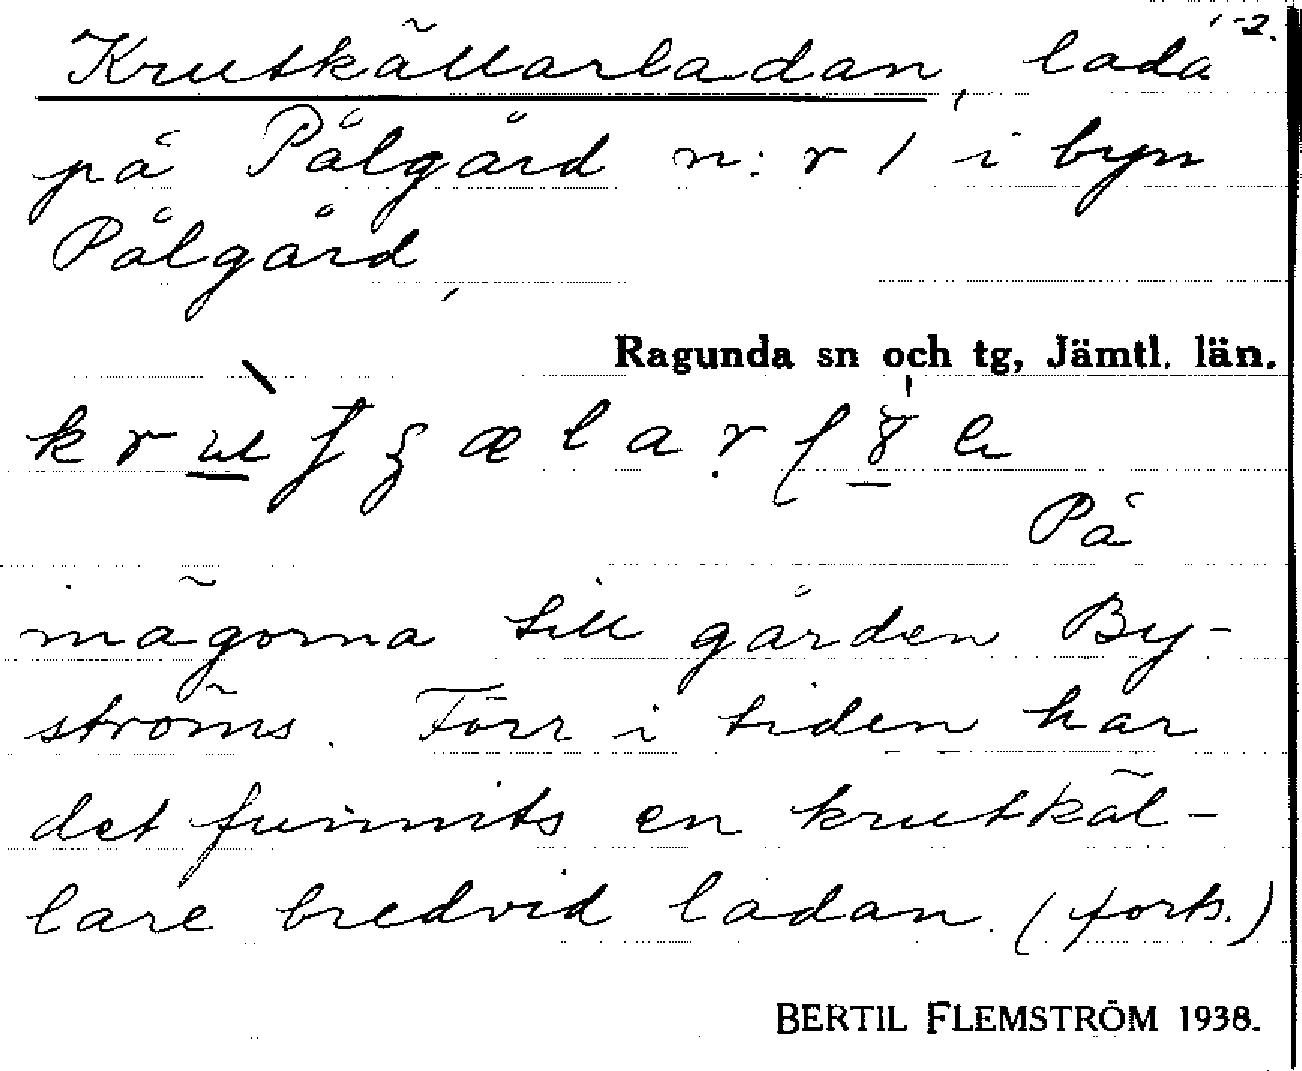 1-2.
Krutkällarladan, lada
på Pålgård n:r 1 i byn
Pålgård,
Ragunda sn och tg, Jämtl. län.
På
mägorna till gården By-
ströms. Förr i tiden har
det funnits en krutkäl-
lare bredvid ladan. (forts.)
BERTIL FLEMSTRÖM 1938.